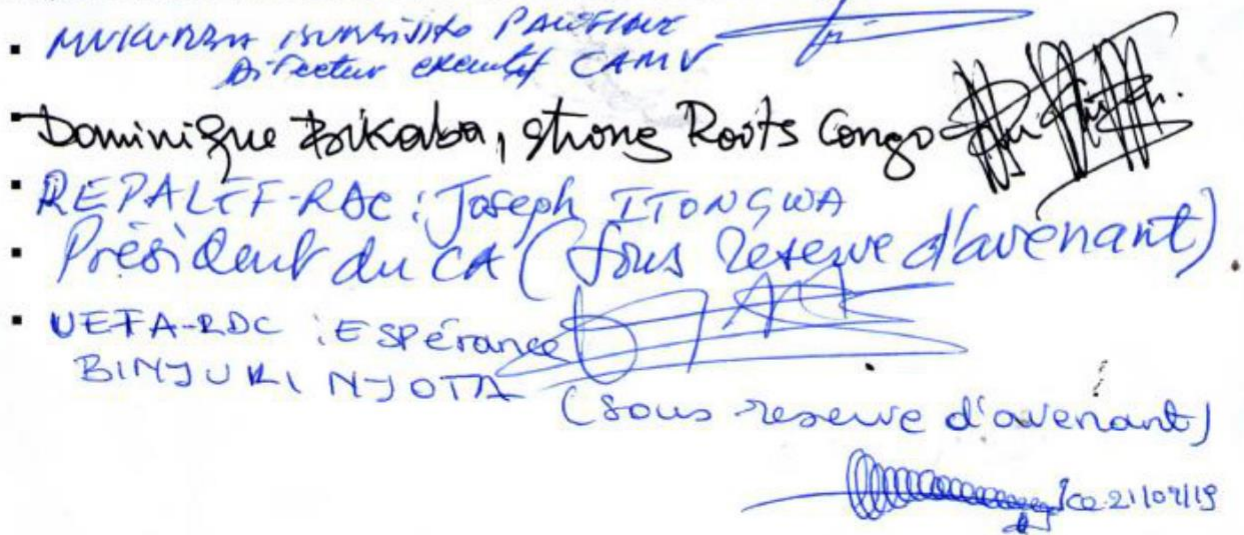 Directeur exécutif CAMV
Dominique Bikaba, Strong Roots Congo
REPALEF-RDC : Joseph ITONGWA
Président du CA (Sous réserve d'avenant)
UEFA-RDC : Espérance
BINYUKI NYOTA
(sous reserve d'avenant)
ce 21/07/19